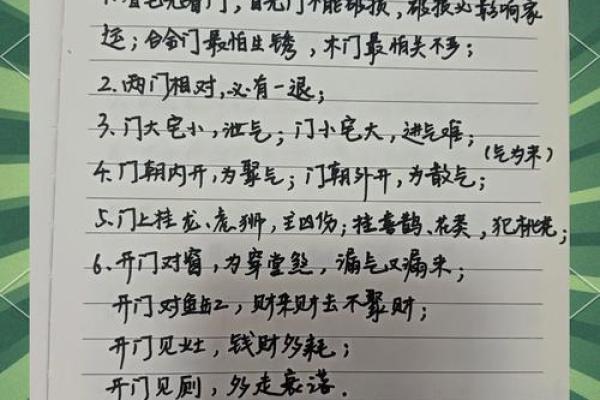 1.看宅先看门,首先门不能破损,破损必影响家
运;合金门最怕生锈,木门最怕关不严;
2.两门相对,必有一退;
3.门大宅小,泄气;门小宅大,进气难;
(气为来)
4.门朝内开,为聚气;门朝外开,为散气;
5.门上挂龙、虎狮,主凶伤;挂喜鹊、花类,犯桃花;
6.开门对窗,为穿堂煞,漏气又漏来;
开门对鱼缸,财来财去不聚财;
开门见灶,钱财多耗;
开门见厕,多走衰落.